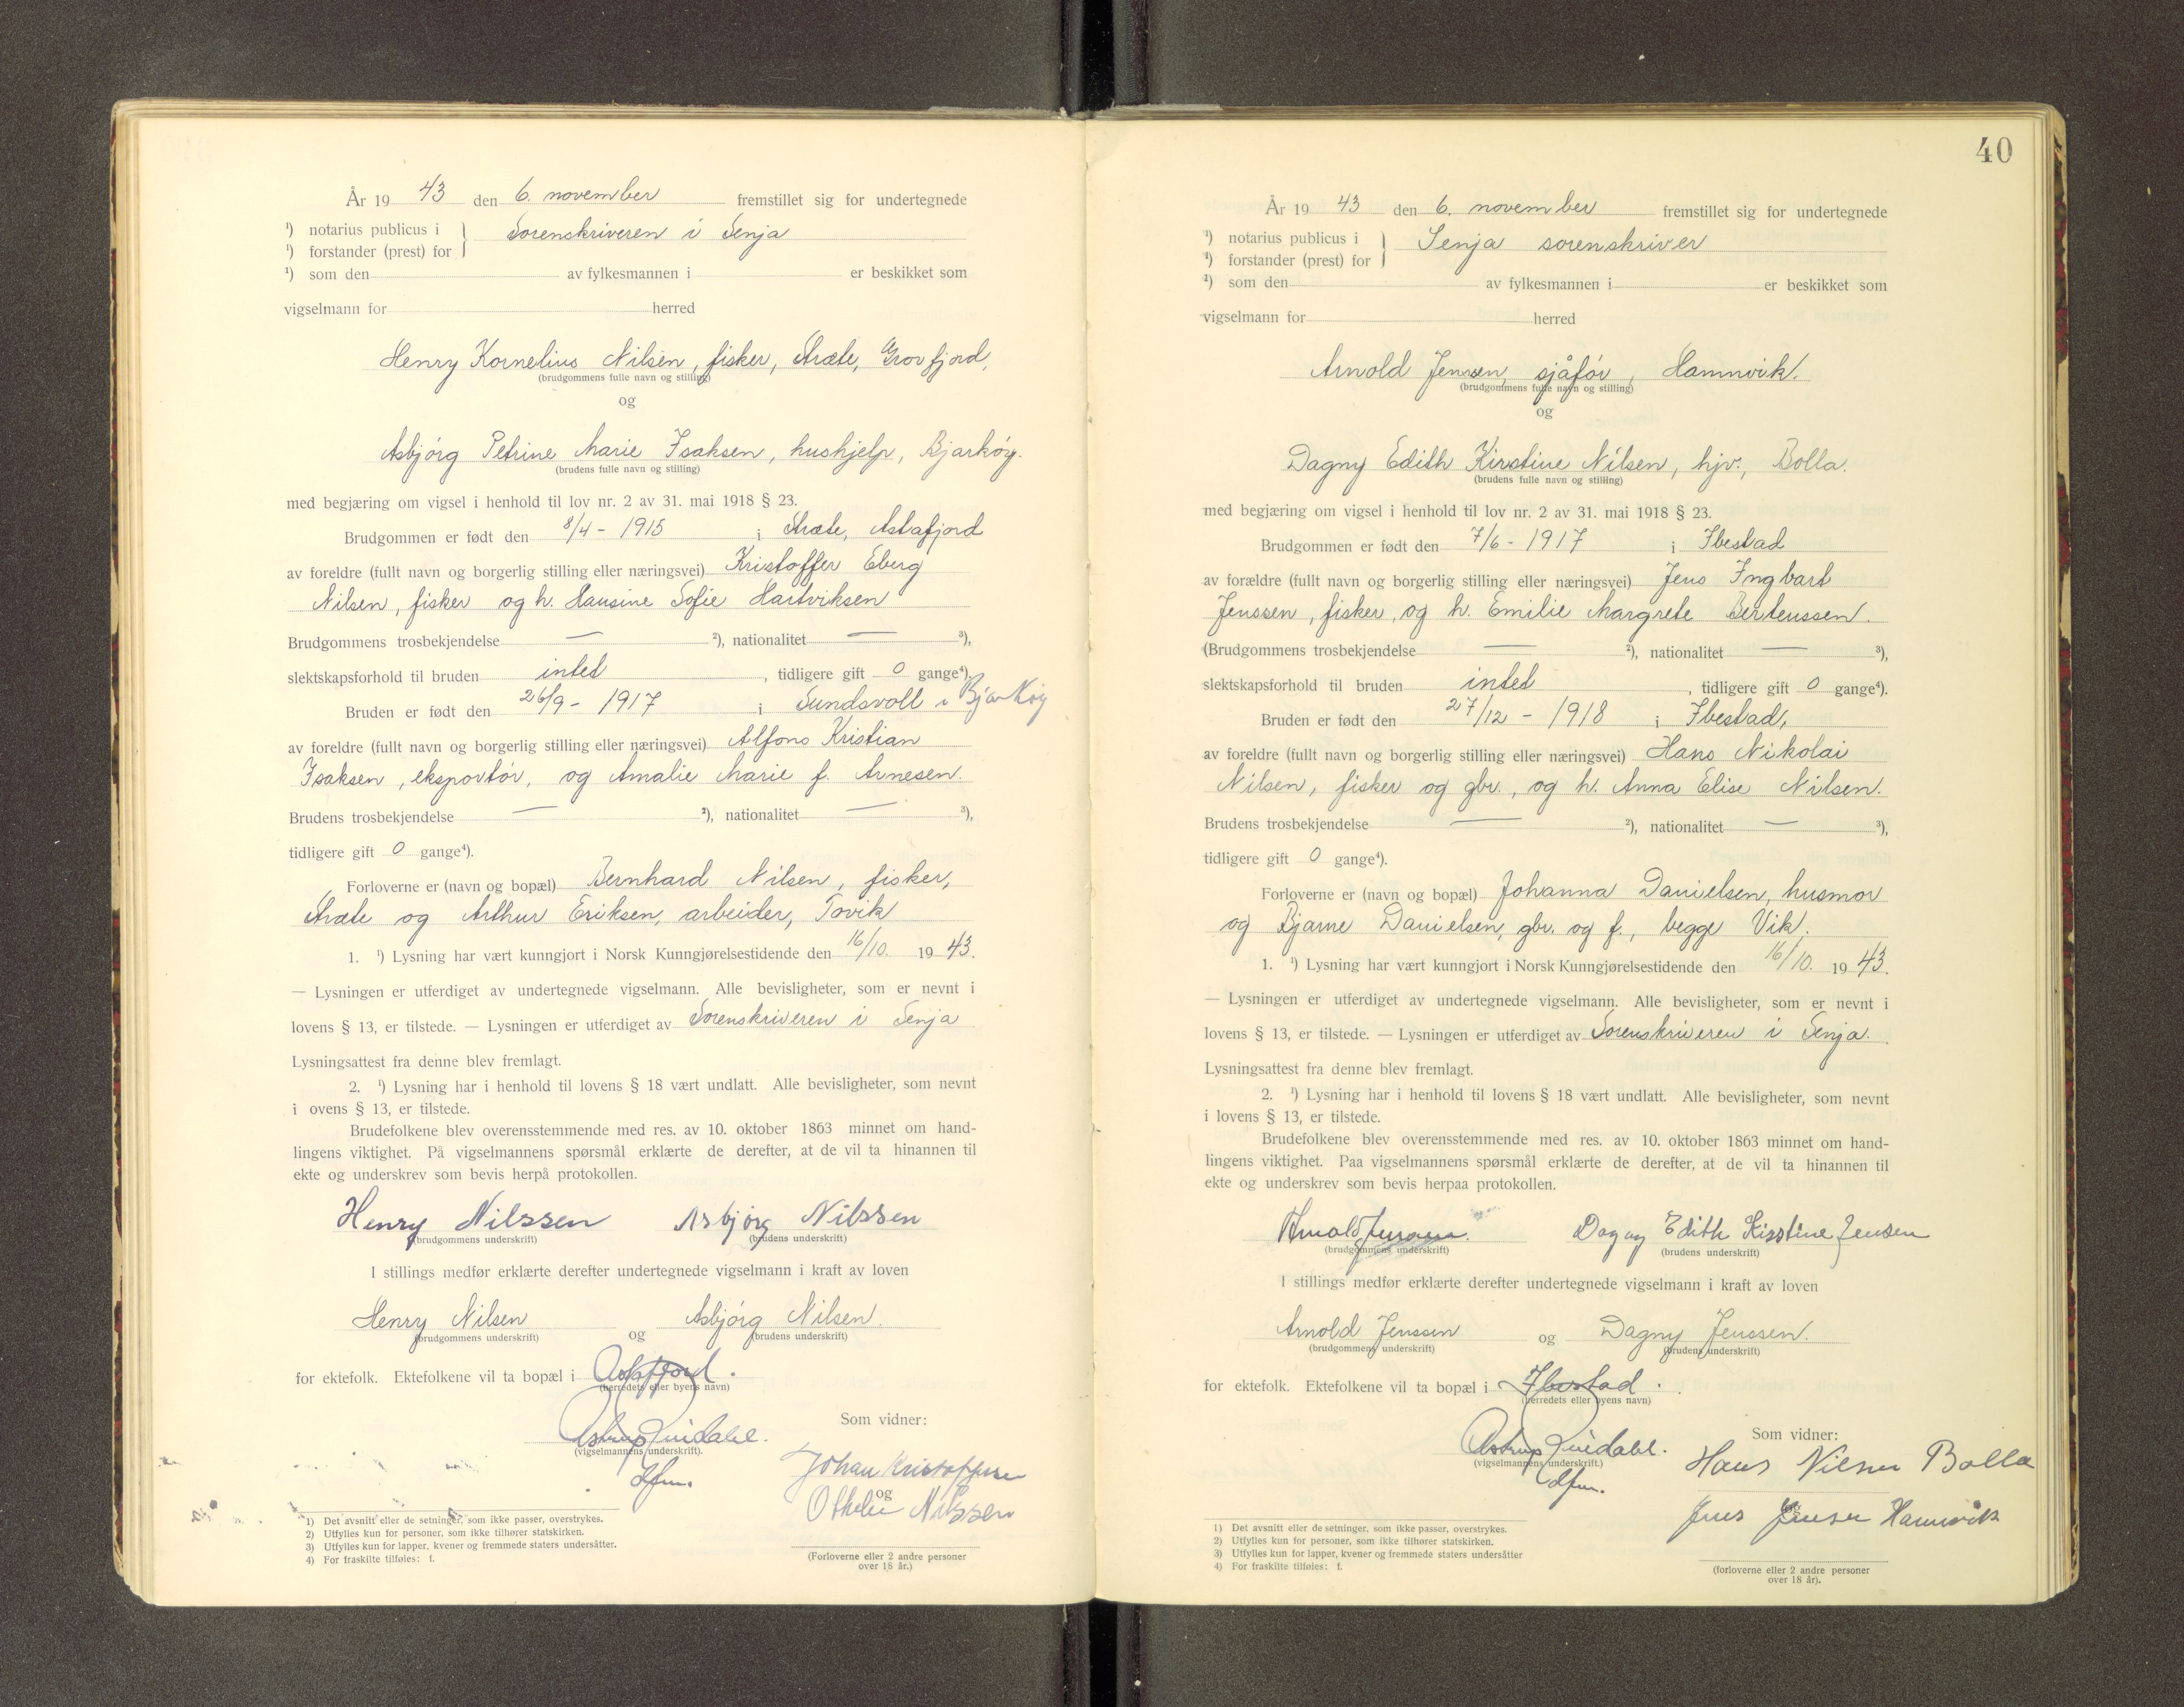 År 19 43 den 6. november fremstillet sig for undertegnede
¹) notarius publicus i
¹) forstander (prest) for } Sorenskriveren i Senja
¹) som den av fylkesmannen i er beskikket som
vigselmann for herred
Henry Kornelius Nilsen, fisker, Stræte, Grovfjord,
(brudgommens fulle navn og stilling)
og
Asbjörg Petrine Marie Isaksen, hushjelp, Bjarköy.
(brudens fulle navn og stilling)
med begjæring om vigsel i henhold til lov nr. 2 av 31. mai 1918 § 23.
Brudgommen er født den 8/4 - 1915 i Stræte, Astafjord
av foreldre (fullt navn og borgerlig stilling eller næringsvei) Kristoffer Eberg
Nilsen, fisker og h. Hansine Sofie Hartviksen
Brudgommens trosbekjendelse — ²), nationalitet — ³),
slektskapsforhold til bruden intet, tidligere gift 0 gange⁴).
Bruden er født den 26/9 - 1917 i Sundsvoll i Bjarköy
av foreldre (fullt navn og borgerlig stilling eller næringsvei) Alfons Kristian
Isaksen, eksportör, og Amalie Marie f. Arnesen.
Brudens trosbekjendelse — ²), nationalitet — ³),
tidligere gift 0 gange⁴).
Forloverne er (navn og bopæl) Bernhard Nilsen, fisker,
Stræte og Arthur Eriksen, arbeider, Tovik
1. ¹) Lysning har vært kunngjort i Norsk Kunngjørelsestidende den 16/10. 19 43.
— Lysningen er utferdiget av undertegnede vigselmann. Alle bevisligheter, som er nevnt i
lovens § 13, er tilstede. — Lysningen er utferdiget av Sorenskriveren i Senja
Lysningsattest fra denne blev fremlagt.
2. ¹) Lysning har i henhold til lovens § 18 vært undlatt. Alle bevisligheter, som nevnt
i ovens § 13, er tilstede.
Brudefolkene blev overensstemmende med res. av 10. oktober 1863 minnet om hand-
lingens viktighet. På vigselmannens spørsmål erklærte de derefter, at de vil ta hinannen til
ekte og underskrev som bevis herpå protokollen.
Henry Nilssen Asbjörg Nilssen
(brudgommens underskrift) (brudens underskrift)
I stillings medfør erklærte derefter undertegnede vigselmann i kraft av loven
Henry Nilsen og Asbjörg Nilsen.
(brudgommens underskrift) (brudens underskrift)
for ektefolk. Ektefolkene vil ta bopæl i Astafjord.
(herredets eller byens navn)
Astrup
(vigselmannens underskrift).
Som vidner:
Johan Kristoffersen
og
Nilssen
(Forloverne eller 2 andre personer
over 18 år.)
1) Det avsnitt eller de setninger, som ikke passer, overstrykes.
2) Utfylles kun for personer, som ikke tilhører statskirken.
3) Utfylles kun for lapper, kvener og fremmede staters undersåtter.
4) For fraskilte tilføies: f.
40
År 19 43 den 6. november fremstillet sig for undertegnede
¹) notarius publicus i
¹) forstander (prest) for } Senja sorenskriver
¹) som den av fylkesmannen i er beskikket som
vigselmann for herred
Arnold Jenssen, sjåför, Hamnvik.
(brudgommens fulle navn og stilling)
og
Dagny Edith Kirstine Nilsen, hjv., Bolla.
(brudens fulle navn og stilling)
med begjæring om vigsel i henhold til lov nr. 2 av 31. mai 1918 § 23.
Brudgommen er født den 7/6 - 1917 i Ibestad
av forældre (fullt navn og borgerlig stilling eller næringsvei) Jens Ingbart
Jenssen, fisker, og h. Emilie Margrete Berteussen.
(Brudgommens trosbekjendelse — ²), nationalitet — ³),
slektskapsforhold til bruden intet, tidligere gift 0 gange⁴).
Bruden er født den 27/12 - 1918 i Ibestad,
av foreldre (fullt navn og borgerlig stilling eller næringsvei) Hans Nikolai
Nilsen, fisker og gbr., og h. Anna Elise Nilsen.
Brudens trosbekjendelse — ²), nationalitet — ³),
tidligere gift 0 gange⁴).
Forloverne er (navn og bopæl) Johanna Danielsen, husmor
og Bjarne Danielsen, gbr. og f., begge Vik.
1. ¹) Lysning har vært kunngjort i Norsk Kunngjørelsestidende den 16/10. 19 43.
— Lysningen er utferdiget av undertegnede vigselmann. Alle bevisligheter, som er nevnt i
lovens § 13, er tilstede. — Lysningen er utferdiget av Sorenskriveren i Senja.
Lysningsattest fra denne blev fremlagt.
2. ¹) Lysning har i henhold til lovens § 18 vært undlatt. Alle bevisligheter, som nevnt
i lovens § 13, er tilstede.
Brudefolkene blev overensstemmende med res. av 10. oktober 1863 minnet om hand-
lingens viktighet. Paa vigselmannens spørsmål erklærte de derefter, at de vil ta hinannen til
ekte og underskrev som bevis herpaa protokollen.
Arnold Jenssen. Dagny Edith Kirstine Jensen
(brudgommens underskrift) (brudens underskrift)
I stillings medfør erklærte derefter undertegnede vigselmann i kraft av loven
Arnold Jenssen og Dagny Jenssen.
(brudgommens underskrift) (brudens underskrift)
for ektefolk. Ektefolkene vil ta bopæl i Ibestad.
(herredets eller byens navn)
Astrup
(vigselmannens underskrift.)
Som vidner:
Hans Nilsen Bolla
og
Jens Jensen Hamnvik
(forloverne eller 2 andre personer
over 18 år).
1) Det avsnitt eller de setninger, som ikke passer, overstrykes.
2) Utfylles kun for personer, som ikke tilhører statskirken.
3) Utfylles kun for lapper, kvener og fremmede staters undersåtter
4) For fraskilte tilføies: f.